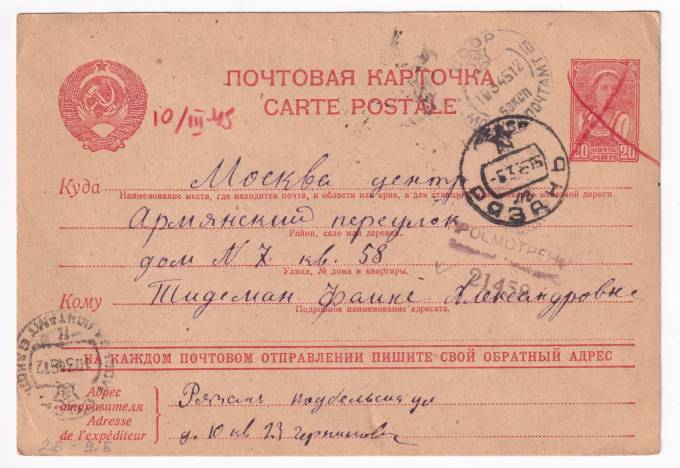 ПОЧТОВАЯ КАРТОЧКА
CARTE POSTALE
10/III-45
20 ПОЧТА 20
Куда Москва центр
Наименование места, где находится почта, и области или края, а для станции железной дороги.
Армянский переулок
Район, село или деревня.
дом N 7 кв. 58
Улица, № дома и квартиры.
ПРОСМОТРЕНО
21458
Кому Тидеман Фаине Александровне
Подробное наименование адресата.
НА КАЖДОМ ПОЧТОВОМ ОТПРАВЛЕНИИ ПИШИТЕ СВОЙ ОБРАТНЫЙ АДРЕС
Адрес
отправителя
Adresse
de l'expéditeur
Рязань подбельская ул
д. 10 кв 23